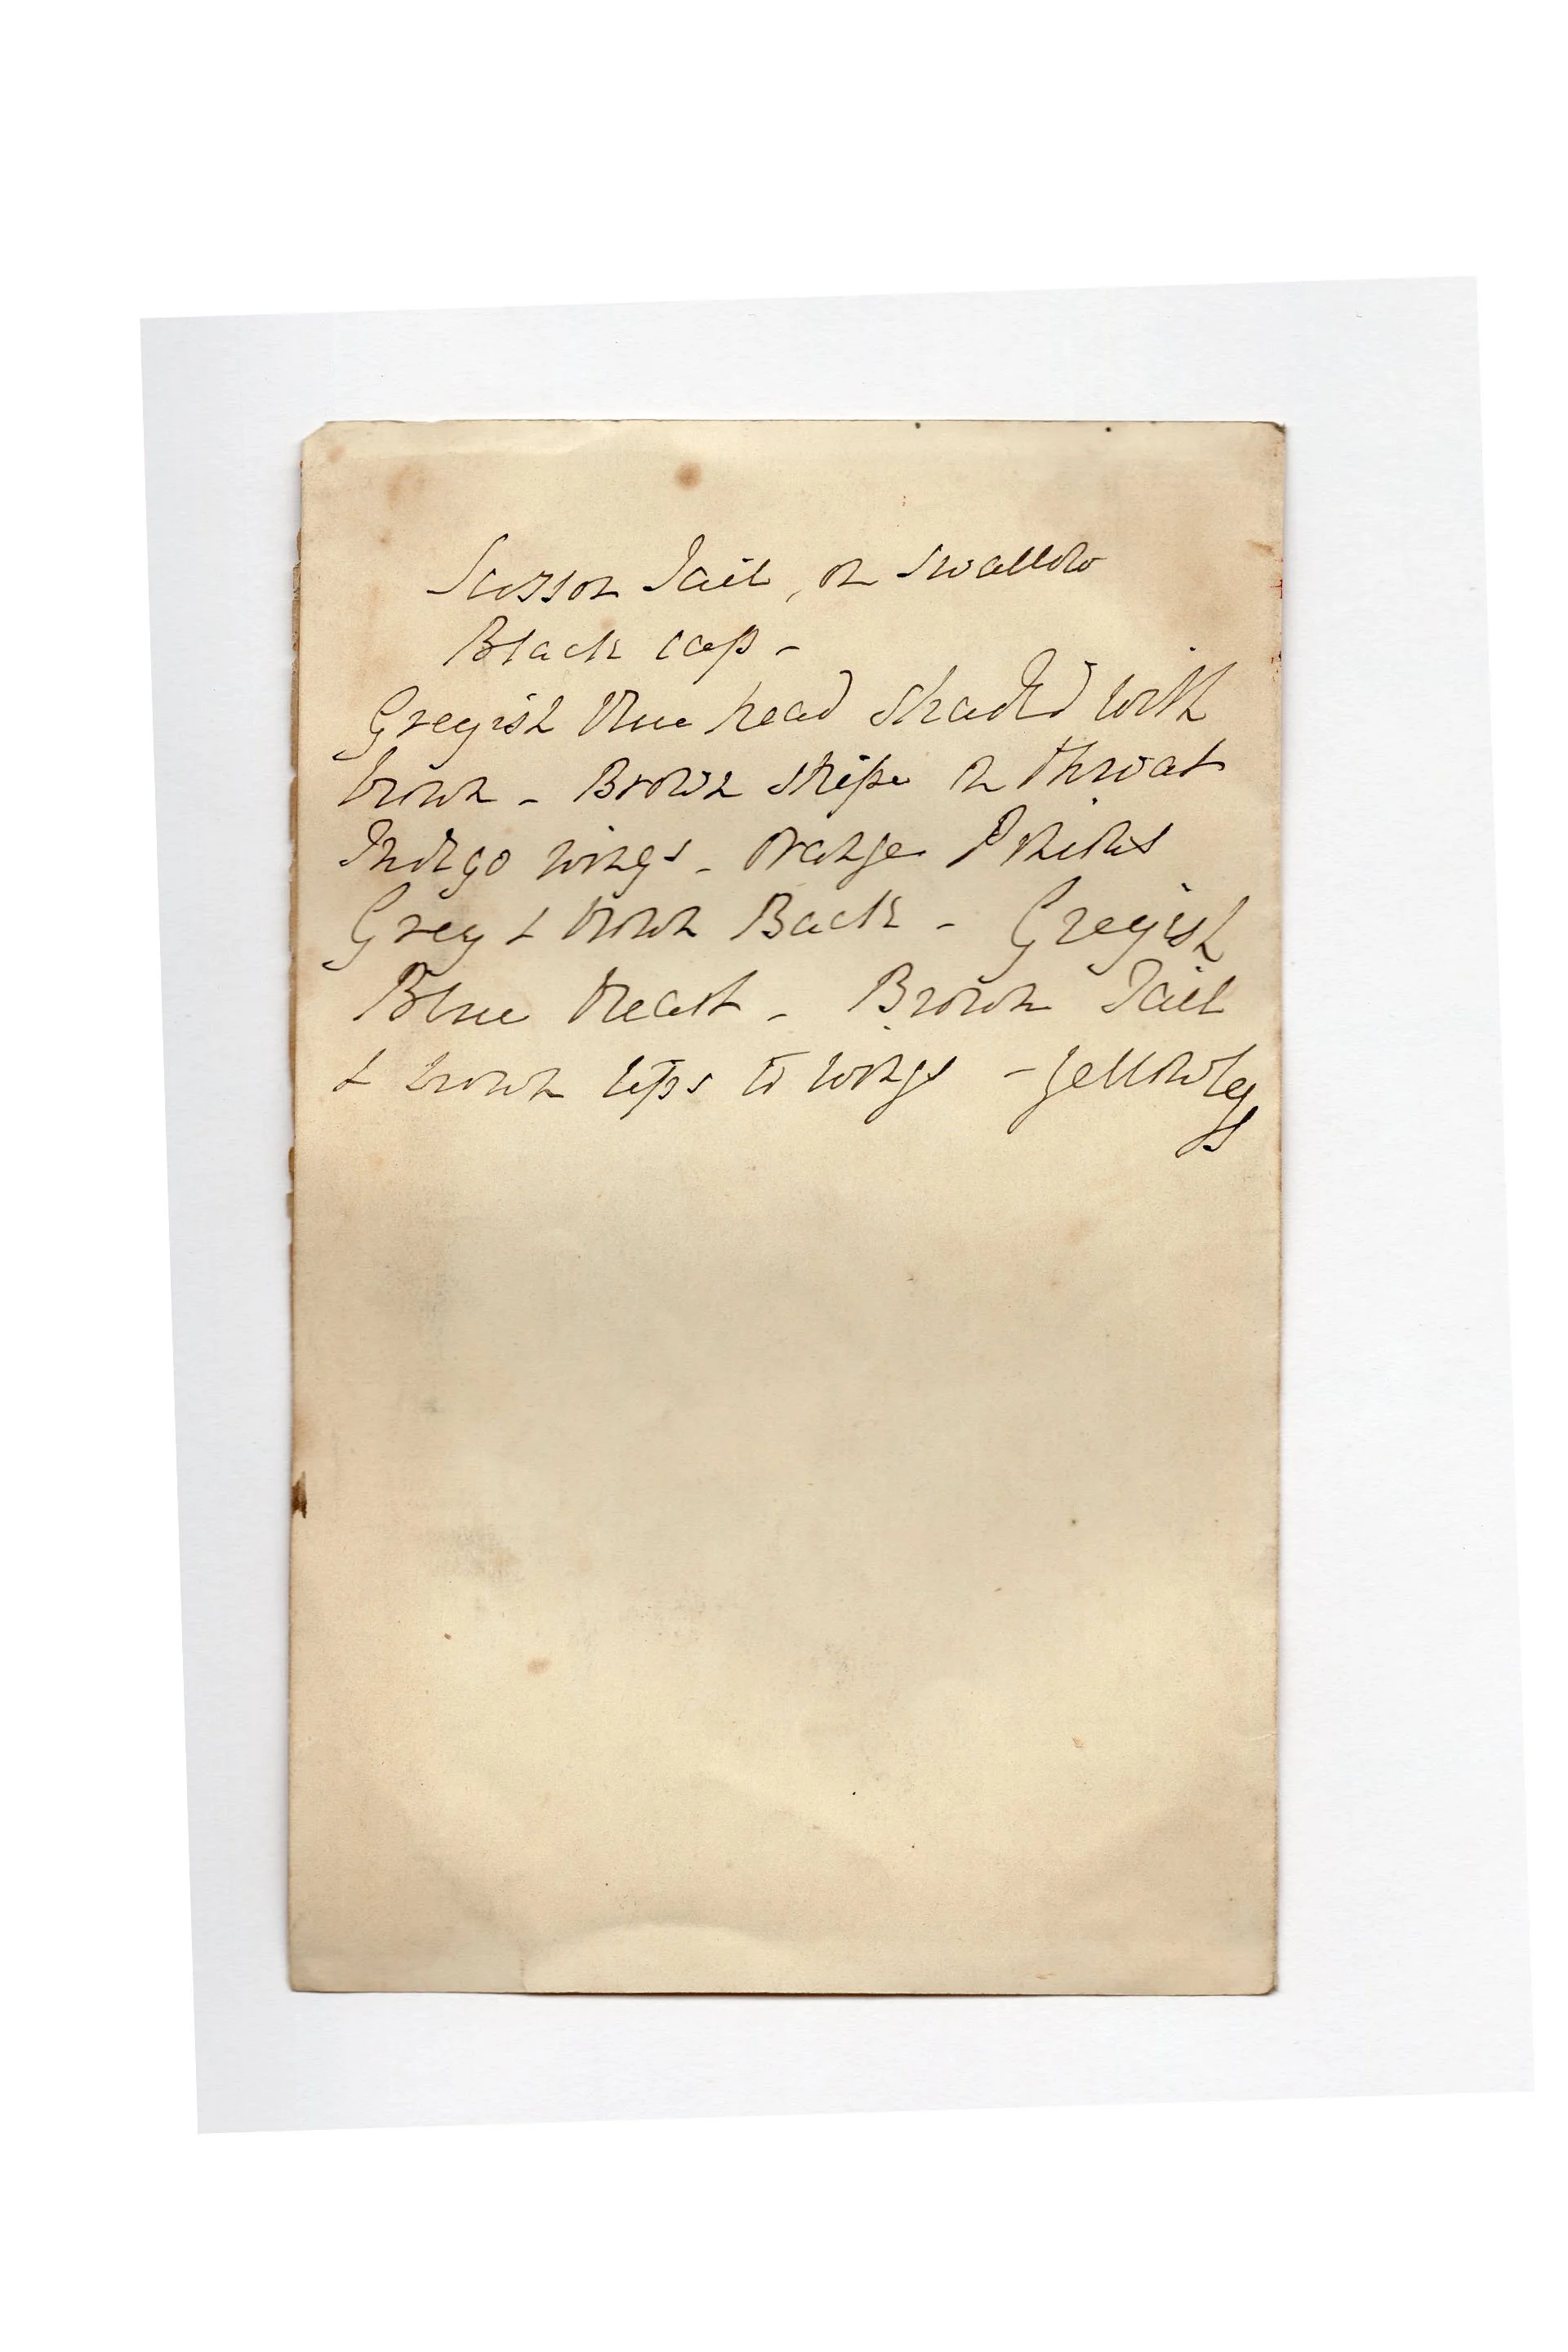 Scissor Tail, or Swallow
Black cap -
Greyish blue head shaded with
brown - Brown stripe on throat
Indigo wings - Orange
Grey & brown Back - Greyish
Blue breast - Brown Tail
& brown tips to wings - yellow leg
s